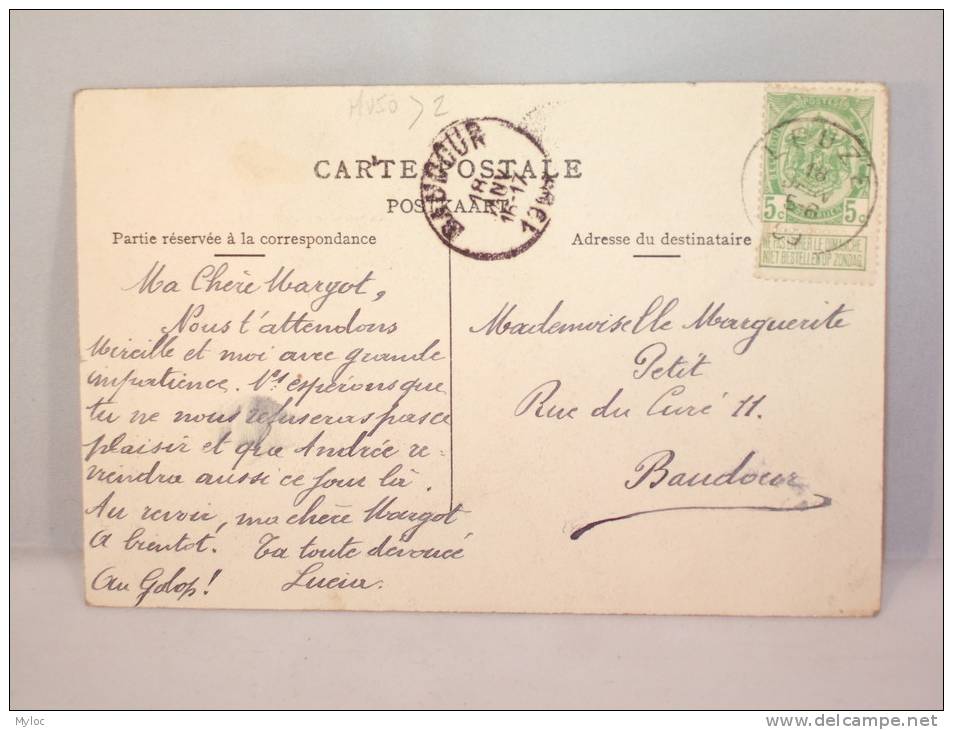 MV50 > 2
CARTE POSTALE
POSTKAART
Partie réservée à la correspondance
Adresse du destinataire
BAUDOUR
18
15-17
LEUZE
18
09
5c 5c
NE PAS LIVRER LE DIMANCHE
NIET BESTELLEN OP ZONDAG
Ma Chère Margot,
Nous t'attendons
Mireille et moi avec grande
impatience. Ns espérons que
tu ne nous refuseras pas ce
plaisir et que Andrée re-
viendra aussi ce jour là.
Au revoir, ma chère Margot
A bientôt. Ta toute dévouée
Au Golop! Lucia.
Mademoiselle Marguerite
Petit
Rue du Curé 11.
Baudour
Myloc
www.delcampe.net